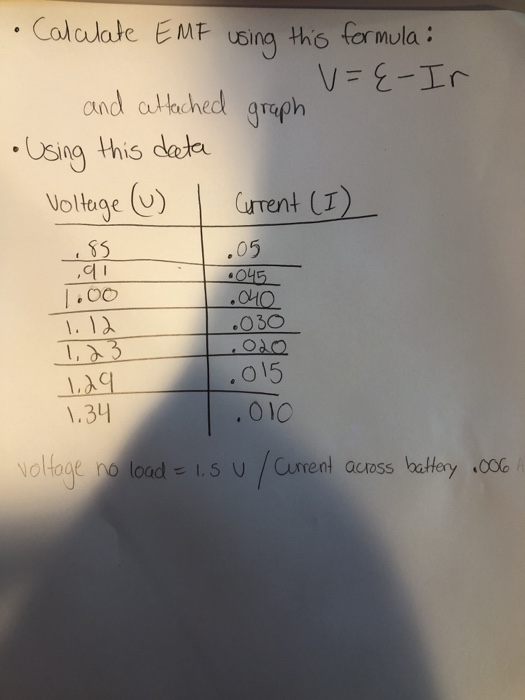 • Calculate EMF using this formula:
V = ε - Ir
and attached graph
• Using this data
Voltage (V) Current (I)
.85 .05
.91 .045
1.00 .040
1.12 .030
1.23 .020
1.29 .015
1.34 .010
voltage no load = 1.5 V / Current across battery .006 A